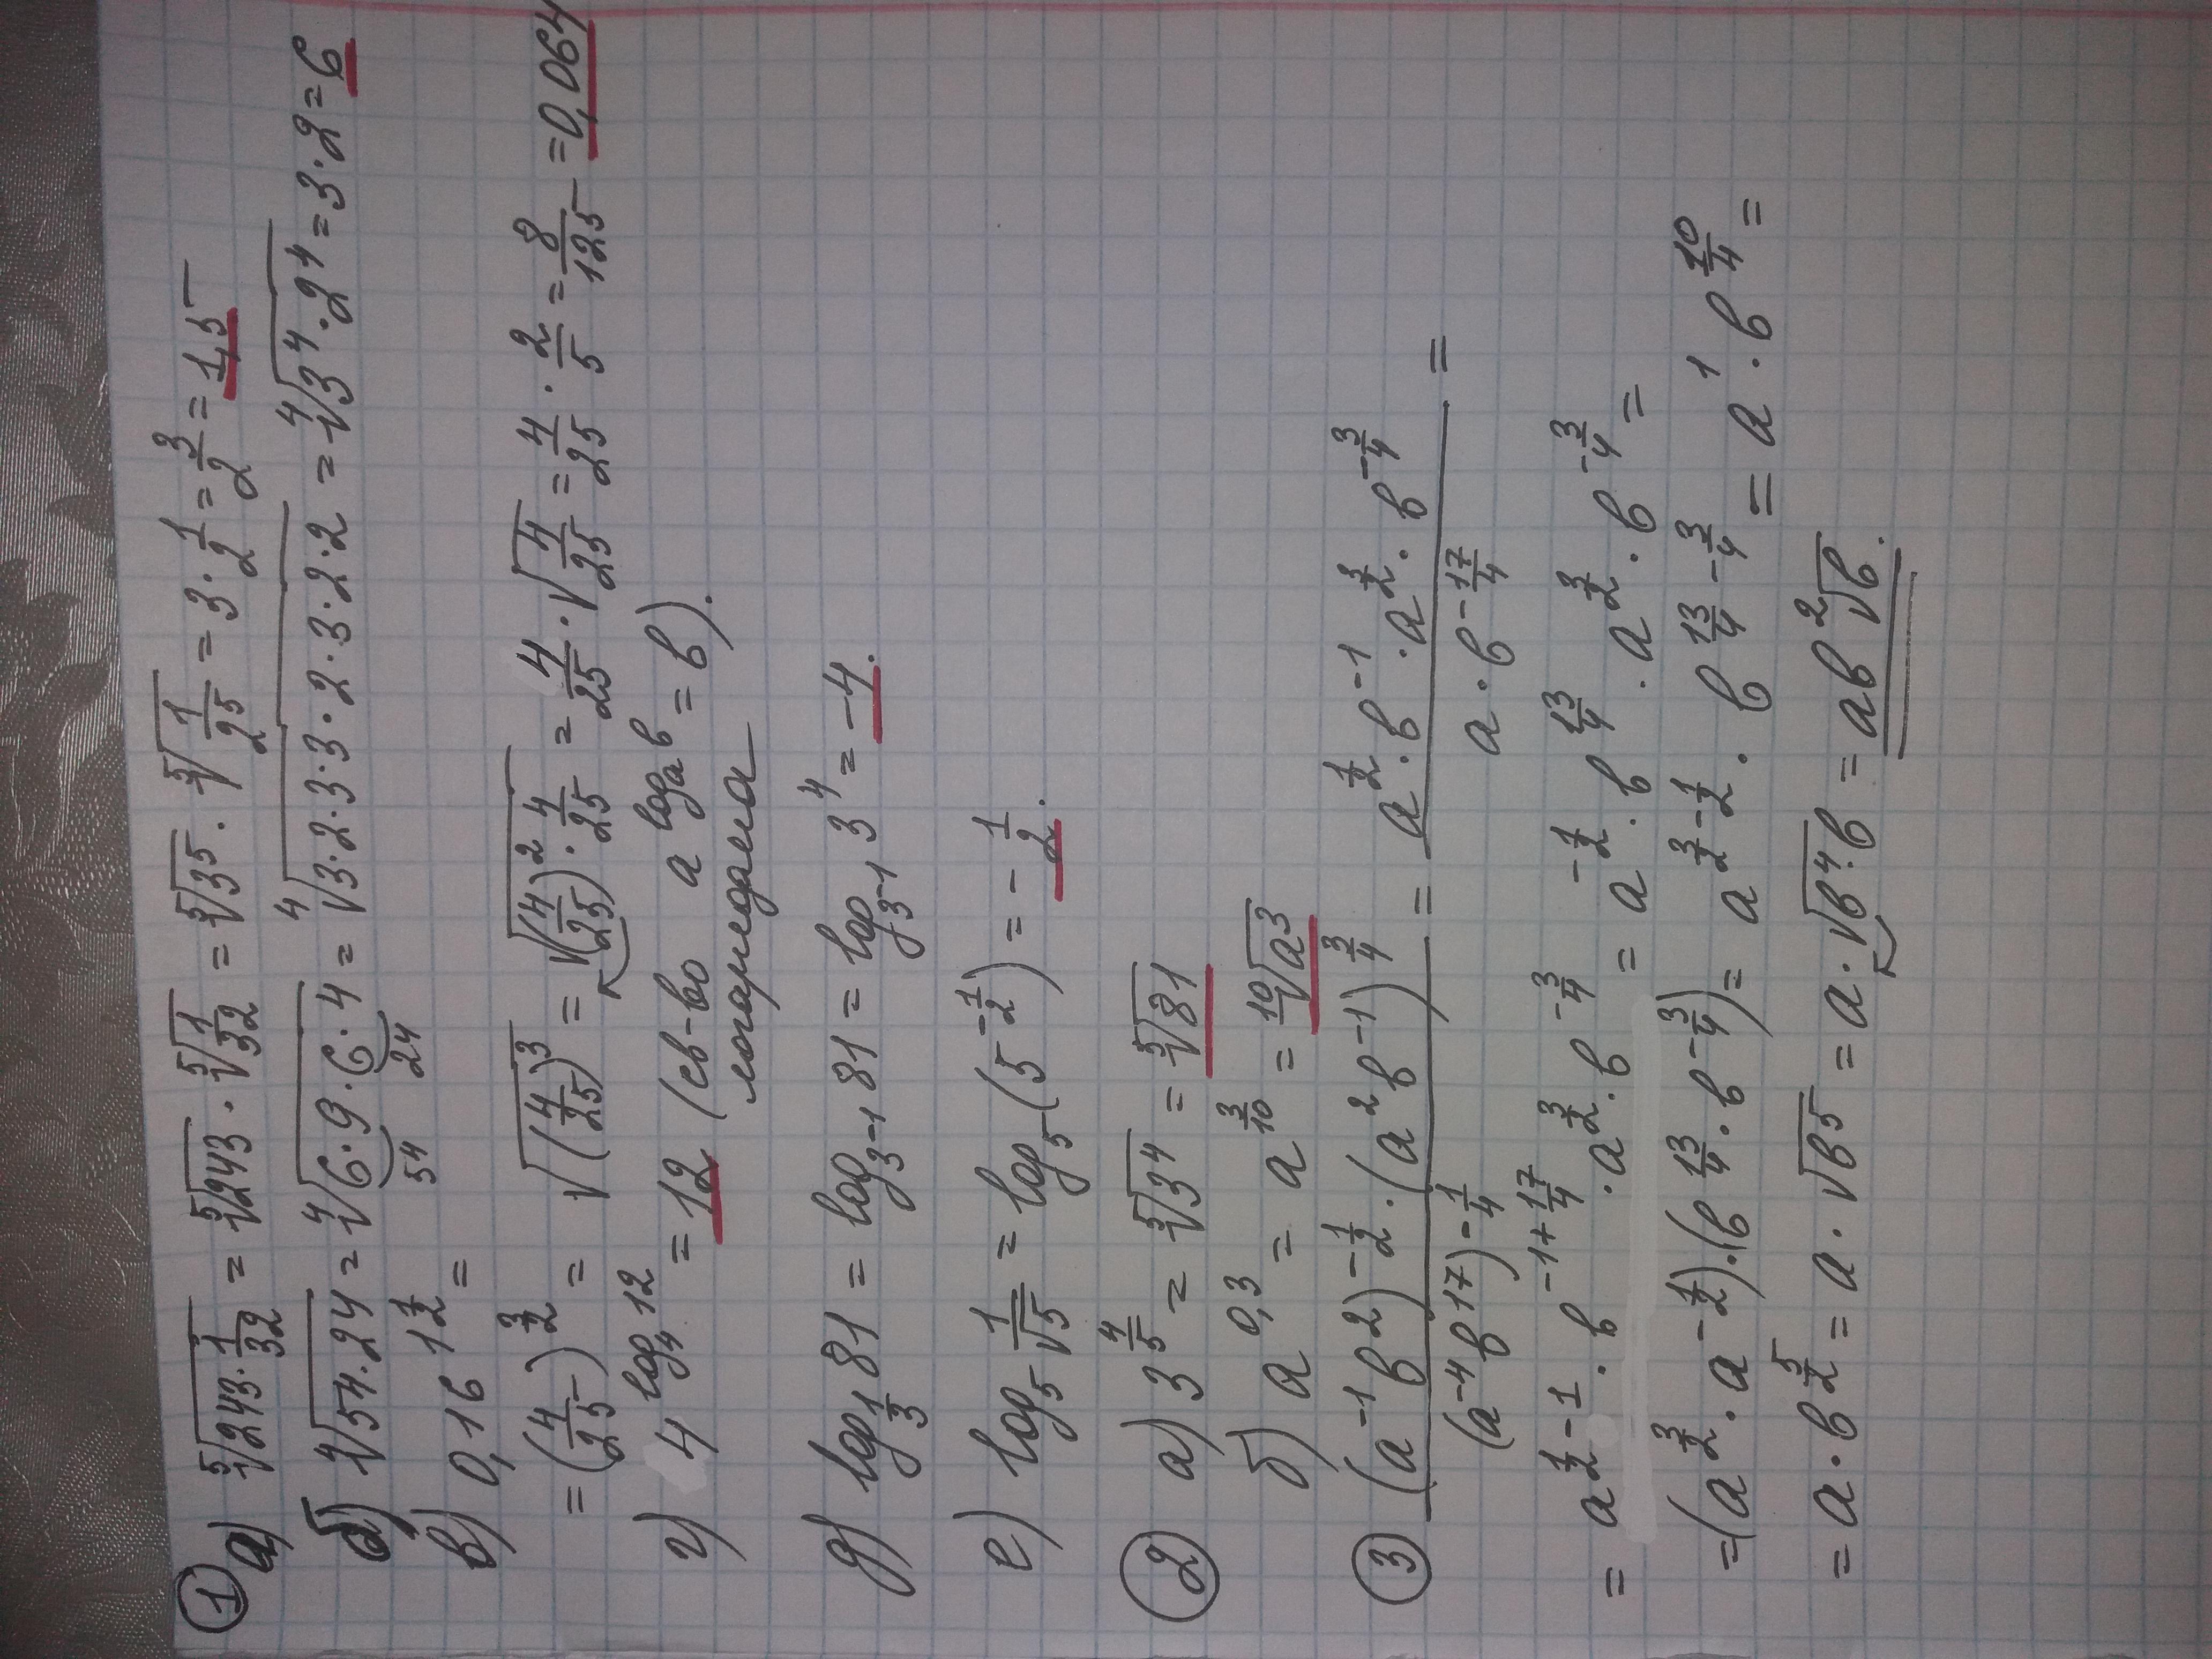 ① а) ⁵√(243·1/32) = ⁵√243 · ⁵√(1/32) = ⁵√3⁵ · ⁵√(1/2⁵) = 3·1/2 = 3/2 = 1,5
б) ⁴√(54·24) = ⁴√(6·9·6·4) = ⁴√(3·2·3·3·2·3·2·2) = ⁴√(3⁴·2⁴) = 3·2 = 6
54 24
в) 0,16^(1 1/2) =
= (4/25)^(3/2) = √((4/25)³) = √((4/25)²·4/25) = 4/25 · √(4/25) = 4/25 · 2/5 = 8/125 = 0,064
г) 4^(log₄12) = 12 (св-во a^(logₐb) = b).
логарифма
д) log_(1/3) 81 = log_(3⁻¹) 81 = log_(3⁻¹) 3⁴ = -4.
е) log₅ 1/√5 = log₅(5^(-1/2)) = -1/2.
② а) 3^(4/5) = ⁵√3⁴ = ⁵√81
б) a^(0,3) = a^(3/10) = ¹⁰√a³
③ (a⁻¹b²)^(-1/2)·(a²b⁻¹)^(3/4) / (a⁻⁴b¹⁷)^(-1/4) = a^(1/2)·b⁻¹·a^(3/2)·b^(-3/4) / a·b^(-17/4) =
= a^(1/2-1)·b^(-1+17/4)·a^(3/2)·b^(-3/4) = a^(-1/2)·b^(13/4)·a^(3/2)·b^(-3/4) =
= (a^(3/2)·a^(-1/2))·(b^(13/4)·b^(-3/4)) = a^(3/2-1/2)·b^(13/4-3/4) = a¹·b^(10/4) =
= a·b^(5/2) = a·√b⁵ = a·√(b⁴·b) = ab²√b.